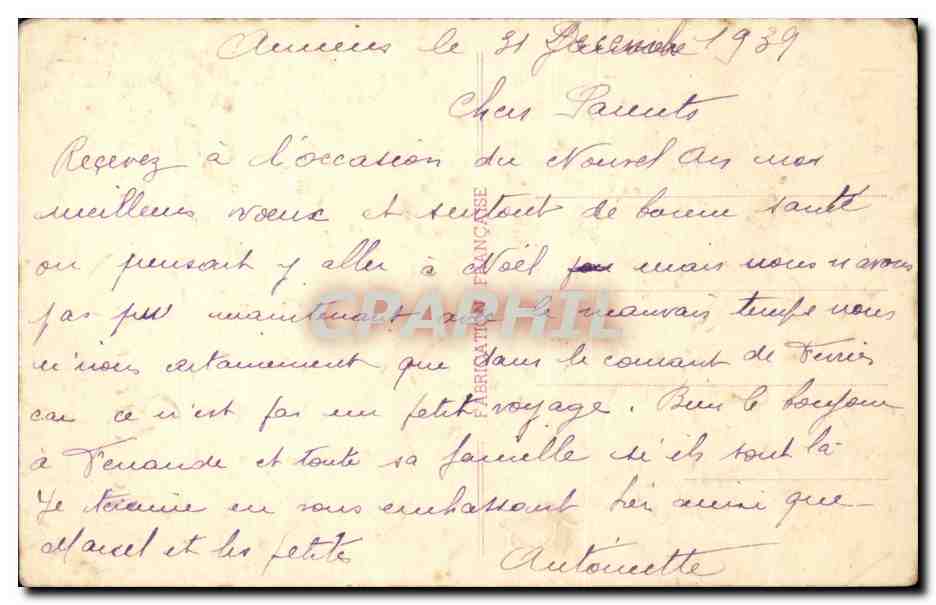 Amiens le 31 Decembre 1939
Chers Parents
Recevez à l'occasion du Nouvel An mes
meilleurs voeux et surtout de bonne santé
on pensait y aller à Noël mais nous n'avons
pas pu maintenant avec le mauvais temps nous
n'irons certainement que dans le courant de Fevrier
car ce n'est pas un petit voyage. Bien le bonjour
à Fernande et toute sa famille si ils sont là
Je termine en vous embrassant bien ainsi que
Marcel et les petits
Antoinette
FABRICATION FRANÇAISE
CPAPHIL